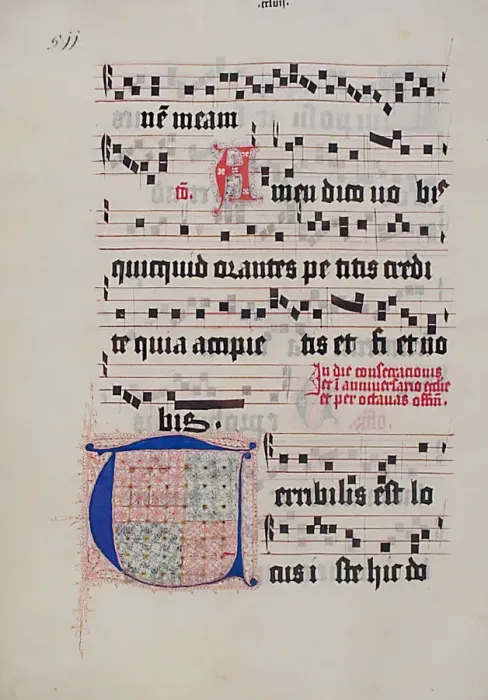 .cclvij.
nē meam
cō. Amen dico uo bis
quicquid orantes pe titis credi
te quia accipie tis et fi et uo
bis.
In die consecracionis
et ī anniuersario ecclie
et per octauas offm̄.
Terribilis est lo
cus i ste hic do